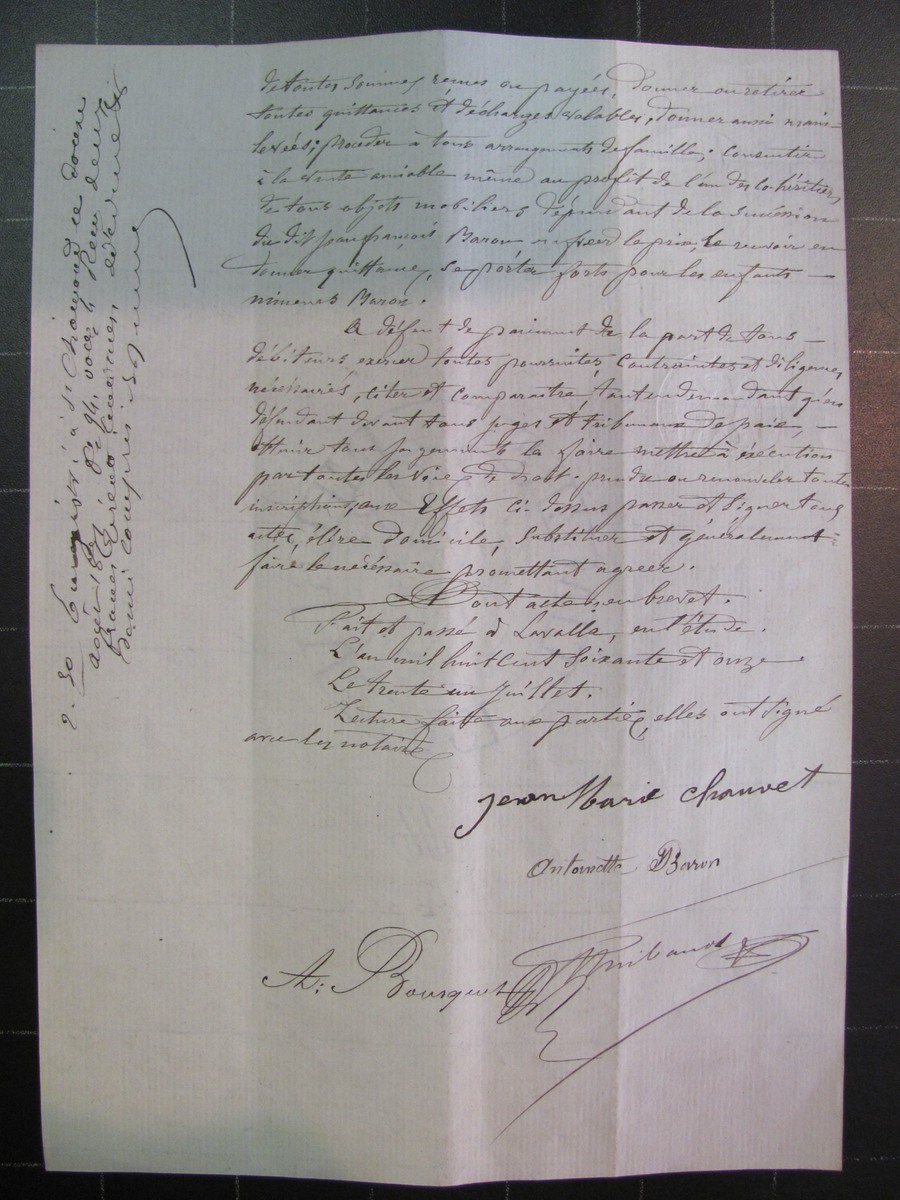 de toutes sommes reçues ou payées, donner ou retirer
toutes quittances et décharges valables, donner aussi main-
levées; procéder à tous arrangements de famille; consentir
à la vente amiable même au profit de l'un des cohéritiers,
de tous objets mobiliers dépendant de la succession
du dit Jean françois Baron en fixer le prix, le recevoir en
donner quittance, se porter forts pour les enfants —
mineurs Baron.
A défaut de paiement de la part de tous —
débiteurs exercer toutes poursuites, contraintes et diligences
nécessaires, citer et comparaître tant en demandant qu'en
défendant devant tous juges et tribunaux de paix, —
obtenir tous jugements les faire mettre à exécution
par toutes les voies de droit: prendre ou renouveler toutes
inscriptions, aux Effets ci-dessus passer et signer tous
actes, élire domicile, substituer et généralement
faire le nécessaire promettant agréer.
Dont acte en brevet.
Fait et passé à Lavalla, en l'étude.
L'an mil huit cent soixante et onze
Le trente un Juillet.
Lecture faite aux parties, elles ont signé
avec les notaires
jean Marie chauvet
Antoinette Baron
A: Bousquet
Thibaud
2. 50 Enregistré à St Chamond ce douze
août 1871 f° 94, vo et C 4 Reçu deux
francs
demi compris